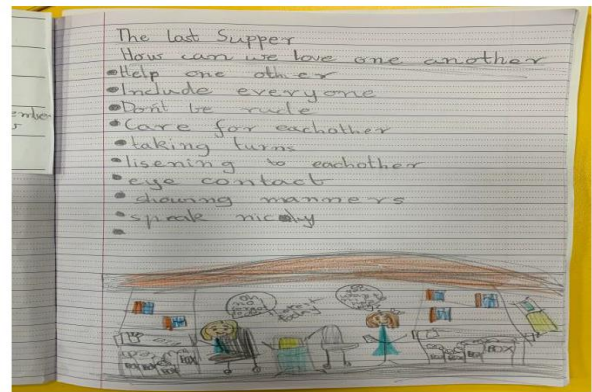 The last Supper
How can we love one another
Help one other
Include everyone
Dont be rude
Care for eachother
taking turns
lisening to eachother
eye contact
showing manners
speak nicely
BOX
BOX
BOX
BOX
BOX
BOX